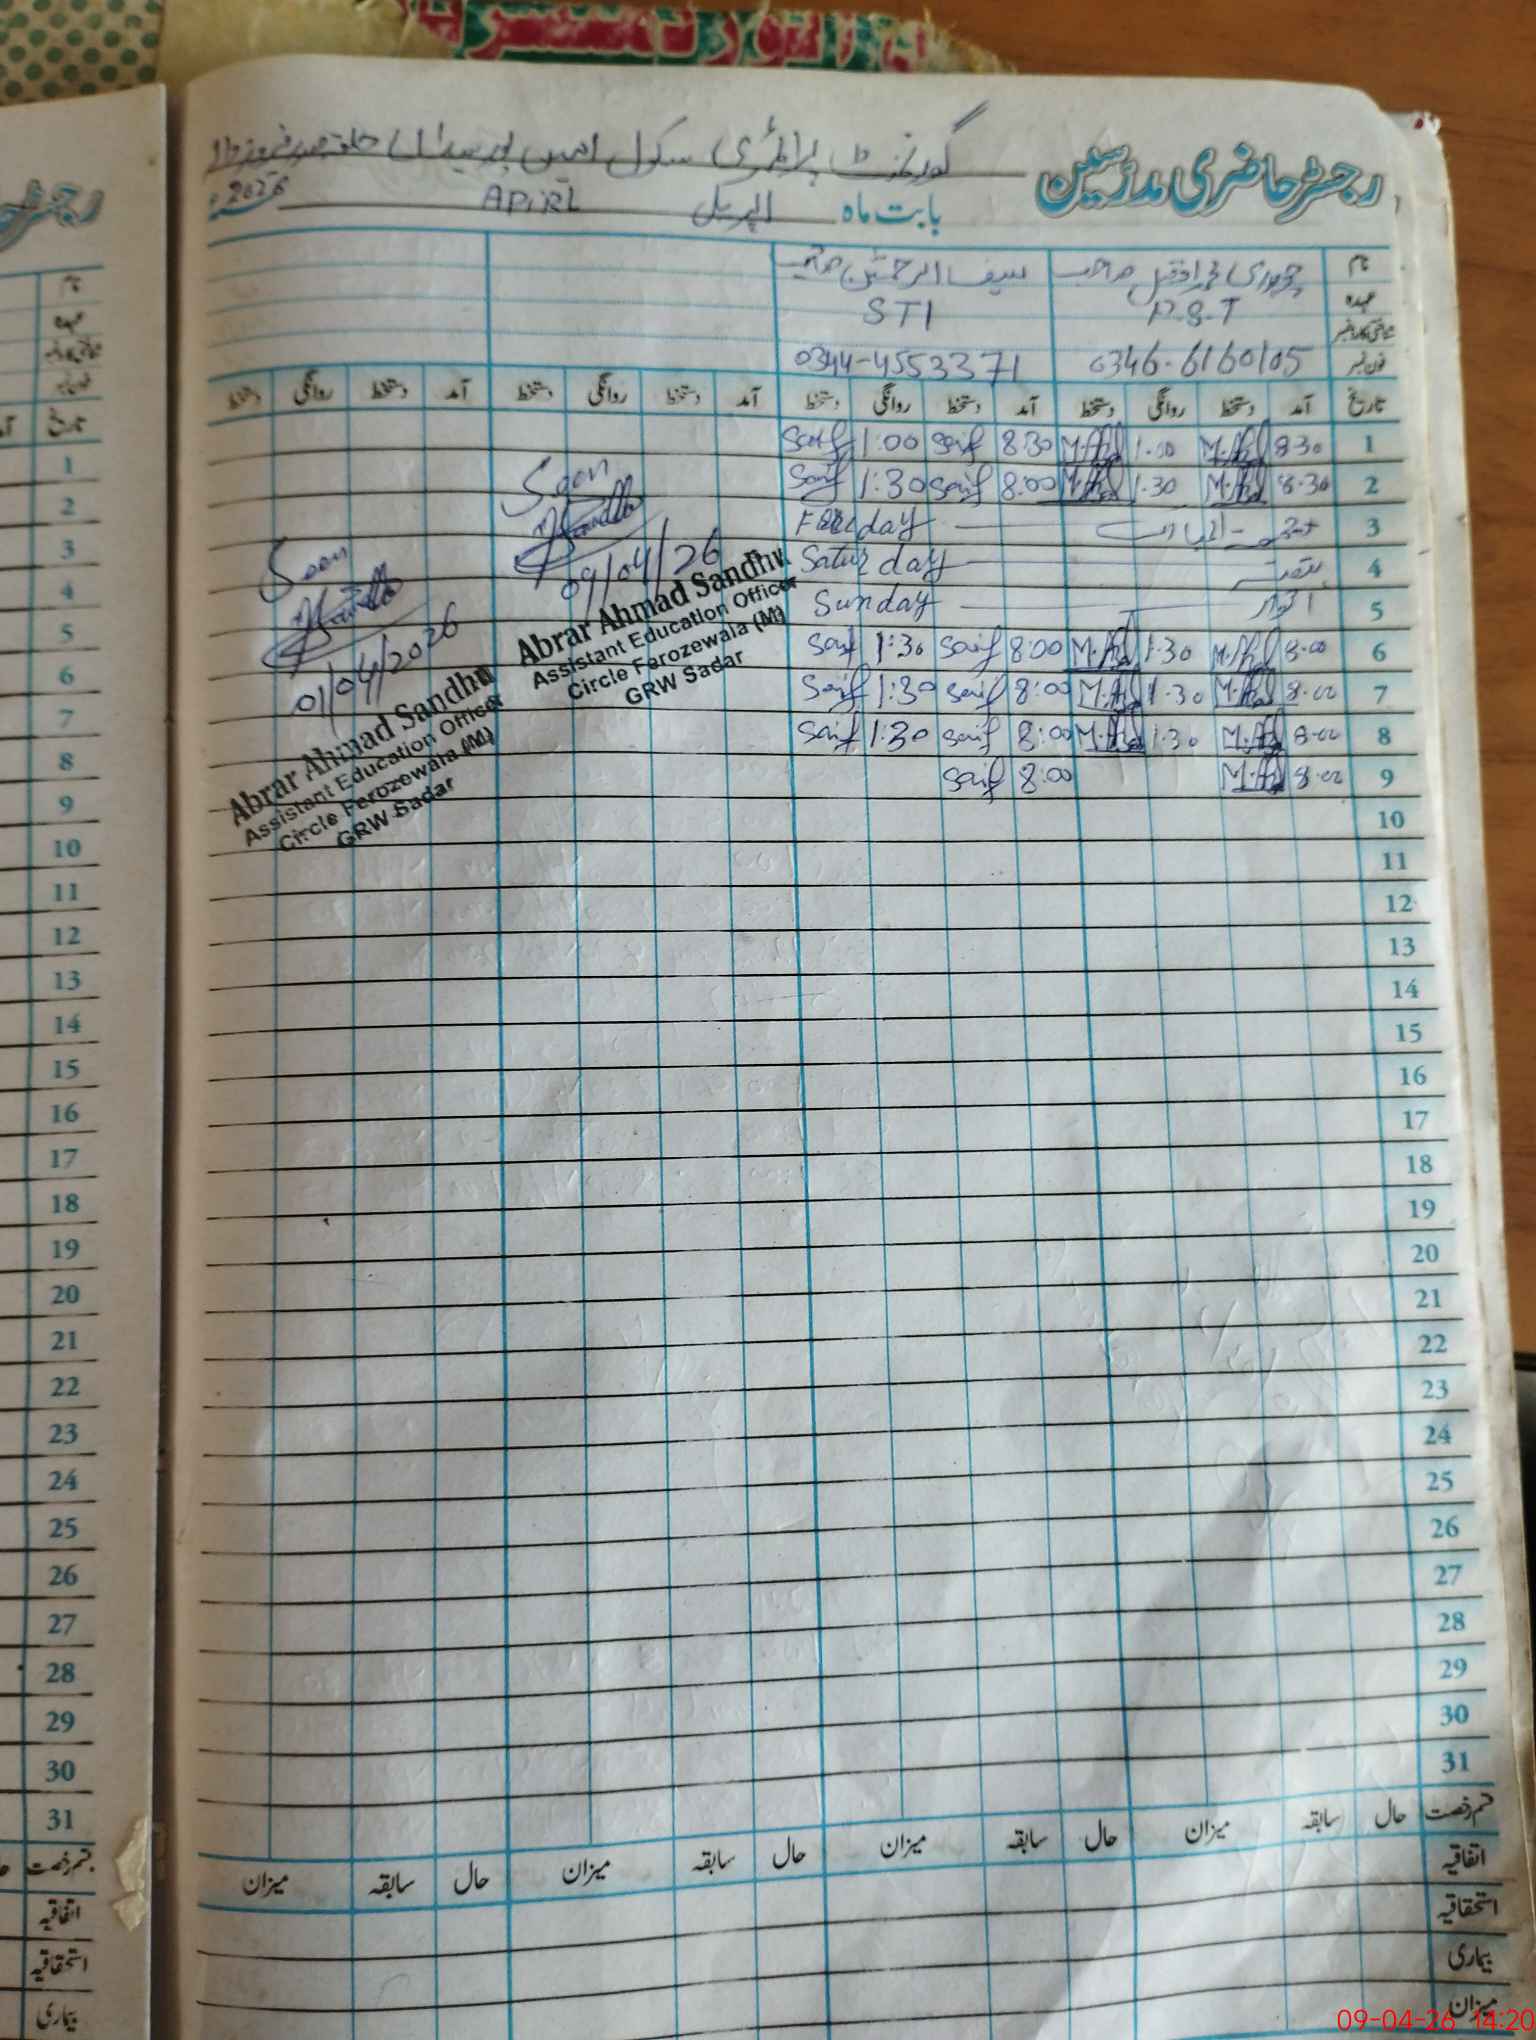 رجسٹر حاضری مدرسین
گورنمنٹ پرائمری سکول امین پور سیداں حلقہ
بابت ماہ اپریل APiRL 2026
نام سیف الرحمٰن صاحب
عہدہ P.S.T STI
فون نمبر 0346-6160105 0344-4553371
تاریخ آمد دستخط روانگی دستخط آمد دستخط روانگی دستخط آمد دستخط روانگی دستخط آمد دستخط روانگی دستخط
1 8.30 1.00 8:30 Saif 1:00 Saif
2 8.30 1.30 8:00 Saif 1:30 Saif
3 day
4 Saturday
5 اتوار Sunday
6 8.00 1.30 8:00 Saif 1:30 Saif
7 8.00 1.30 8:00 Saif 1:30 Saif
8 8.00 1.30 8:00 Saif 1:30 Saif
9 8.00 8:00 Saif
10
11
12
13
14
15
16
17
18
19
20
21
22
23
24
25
26
27
28
29
30
31
Seen
09/04/26
Abrar Ahmad Sandhu
Assistant Education Officer
Circle Ferozewala (M)
GRW Sadar
Seen
01/04/2026
Abrar Ahmad Sandhu
Assistant Education Officer
Circle Ferozewala (M)
GRW Sadar
قسم رخصت حال سابقہ میزان حال سابقہ میزان حال سابقہ میزان حال سابقہ میزان
اتفاقیہ
استحقاقیہ
بیماری
میزان
نام
عہدہ
تاریخ
1
2
3
4
5
6
7
8
9
10
11
12
13
14
15
16
17
18
19
20
21
22
23
24
25
26
27
28
29
30
31
قسم رخصت
اتفاقیہ
استحقاقیہ
بیماری
09-04-26 14:20